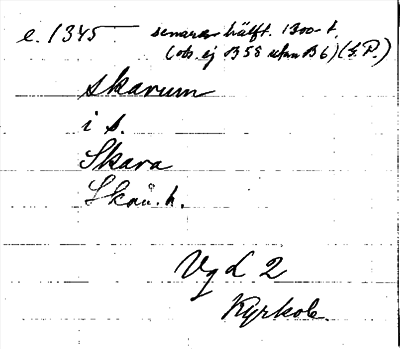 e. 1345 — senare hälft. 1300-t.
(obs. ej B 58 utan B 6) (G.P.)
skarum
i s.
Skara
Skån. h.
Vg L 2
Kyrkob.